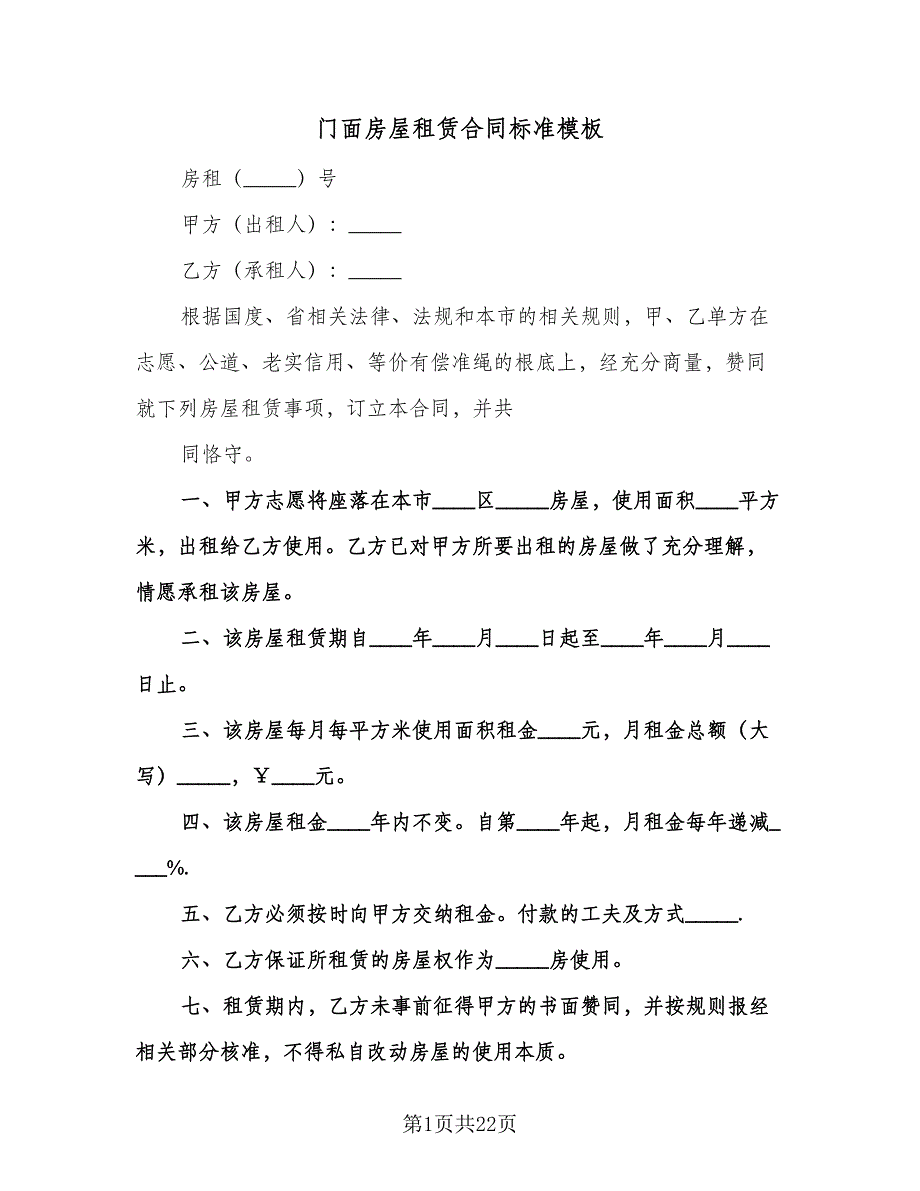 门面房屋租赁合同标准模板
房租（_____）号
甲方（出租人）：_____
乙方（承租人）：_____
根据国度、省相关法律、法规和本市的相关规则，甲、乙单方在
志愿、公道、老实信用、等价有偿准绳的根底上，经充分商量，赞同
就下列房屋租赁事项，订立本合同，并共
同恪守。
一、甲方志愿将座落在本市____区_____房屋，使用面积____平方
米，出租给乙方使用。乙方已对甲方所要出租的房屋做了充分理解，
情愿承租该房屋。
二、该房屋租赁期自____年____月____日起至____年____月____
日止。
三、该房屋每月每平方米使用面积租金____元，月租金总额（大
写）_____，￥____元。
四、该房屋租金____年内不变。自第____年起，月租金每年递减_
___%.
五、乙方必须按时向甲方交纳租金。付款的工夫及方式_____.
六、乙方保证所租赁的房屋权作为_____房使用。
七、租赁期内，乙方未事前征得甲方的书面赞同，并按规则报经
相关部分核准，不得私自改动房屋的使用本质。
第1页共22页